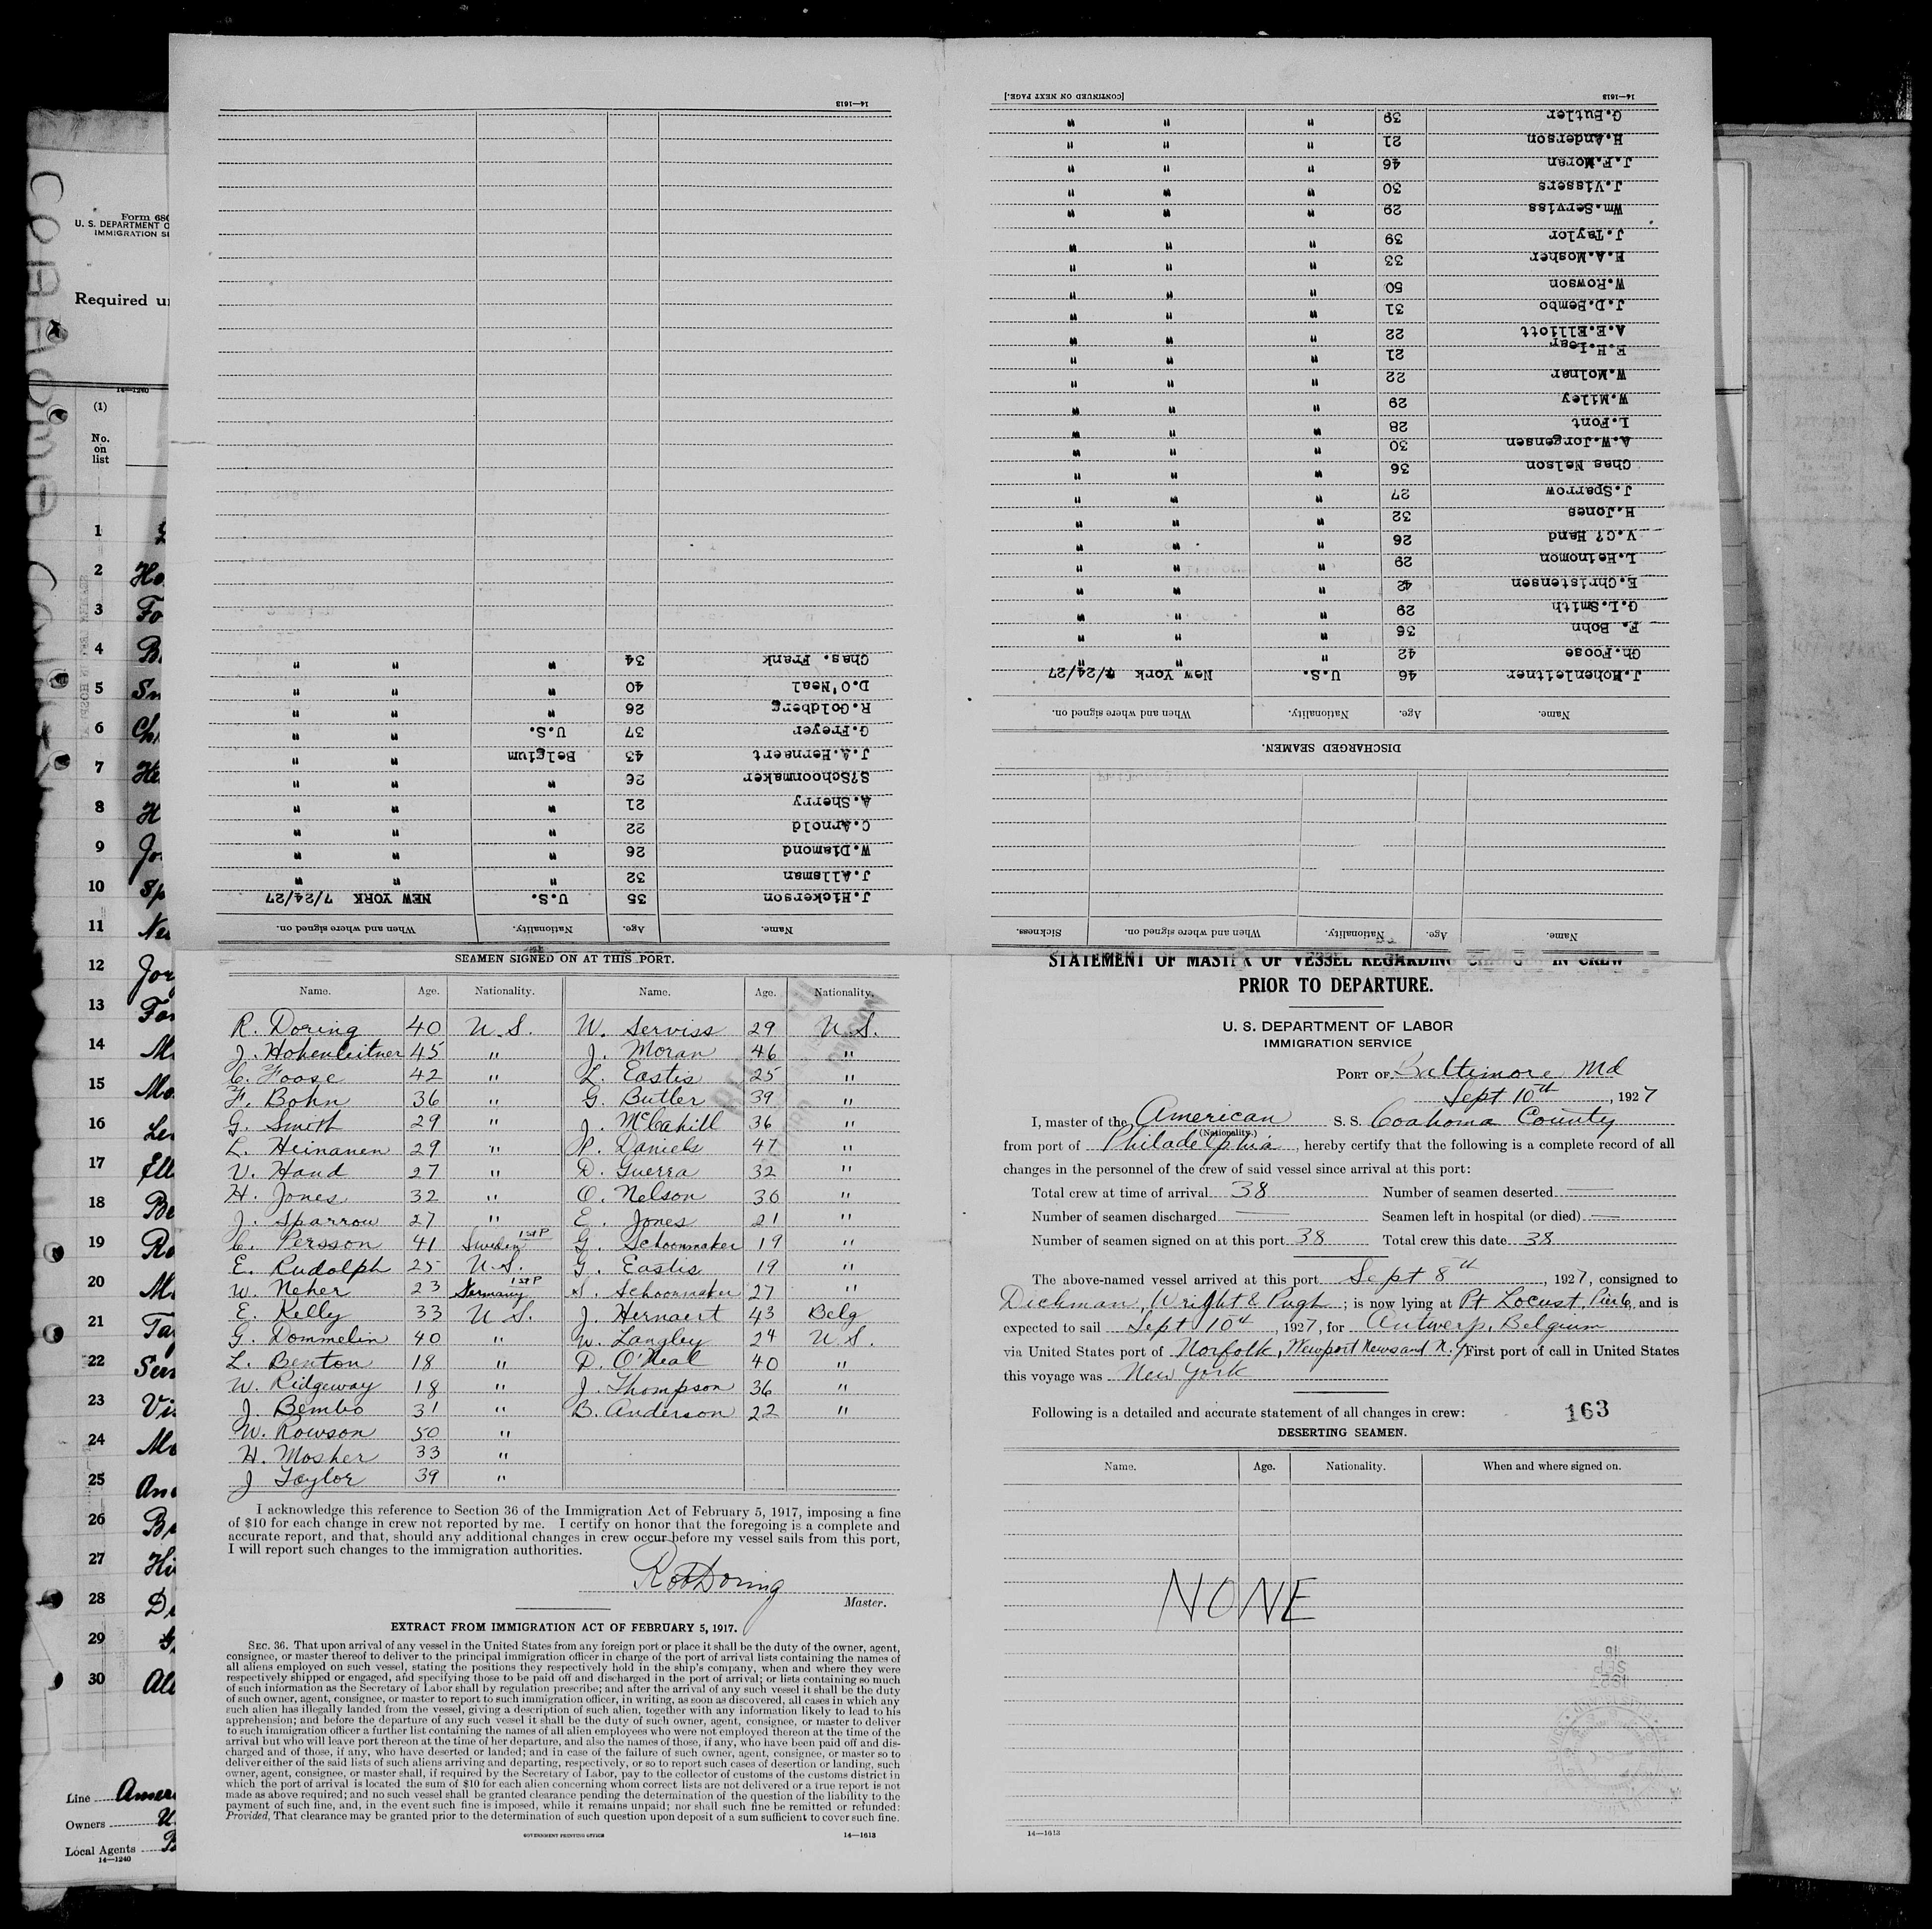 STATEMENT OF MASTER OF VESSEL REGARDING IN CREW
PRIOR TO DEPARTURE.
U. S. DEPARTMENT OF LABOR
IMMIGRATION SERVICE
PORT OF Baltimore Md
Sept 10th, 1927
I, master of the American S. S. Coahoma County
(Nationality.)
from port of Philadelphia, hereby certify that the following is a complete record of all
changes in the personnel of the crew of said vessel since arrival at this port:
Total crew at time of arrival 38 Number of seamen deserted —
Number of seamen discharged — Seamen left in hospital (or died) —
Number of seamen signed on at this port 38 Total crew this date 38
The above-named vessel arrived at this port Sept 8th, 1927, consigned to
Dichman, Wright & Pugh; is now lying at Pt Locust, Pier 6, and is
expected to sail Sept 10th, 1927, for Antwerp, Belgium
via United States port of Norfolk, Newport News and N. Y. First port of call in United States
this voyage was New York
Following is a detailed and accurate statement of all changes in crew:
163
DESERTING SEAMEN.
Name. Age. Nationality. When and where signed on.
NONE
14—1613
Name. Age. Nationality. When and where signed on. Sickness.
DISCHARGED SEAMEN.
Name. Age. Nationality. When and where signed on.
J.Hohenleitner 46 U.S. New York 7/24/27
Ch.Foose 42 " " "
F. Bohn 36 " " "
G.L.Smith 29 " " "
E.Christensen 42 " " "
L.Heinomon 29 " " "
V.C? Hand 26 " " "
H.Jones 32 " " "
J.Sparrow 27 " " "
Chas Nelson 36 " " "
A.W.Jorgensen 30 " " "
L.Font 28 " " "
W.Miley 29 " " "
W.Molnar 22 " " "
E.H.Lear 21 " " "
A.E.Elliott 22 " " "
J.D.Bembo 31 " " "
W.Rowson 50 " " "
H.A.Mosher 33 " " "
J.Taylor 39 " " "
Wm.Serviss 29 " " "
J.Vissers 30 " " "
J.F.Moran 46 " " "
H.Anderson 21 " " "
G.Butler 39 " " "
14—1613 [CONTINUED ON NEXT PAGE.]
Name. Age. Nationality. When and where signed on.
J.Hickerson 35 U.S. NEW YORK 7/24/27
J.Allsman 32 " " "
W.Diamond 26 " " "
C.Arnold 22 " " "
A.Sherry 21 " " "
S?Schoonmaker 26 " " "
J.A.Hernaert 43 Belgium " "
G.Freyer 37 U.S. " "
R.Goldberg 26 " " "
D.O'Neal 40 " " "
Chas. Frank 34 " " "
14—1613
SEAMEN SIGNED ON AT THIS PORT.
Name. Age. Nationality. Name. Age. Nationality.
R. Doring 40 U.S. W. Serviss 29 U.S.
J. Hohenleitner 45 " J. Moran 46 "
C. Foose 42 " L. Eastis 25 "
F. Bohn 36 " G. Butler 39 "
G. Smith 29 " J. McCahill 36 "
L. Heinanen 29 " P. Daniels 47 "
V. Hand 27 " D. Guerra 32 "
H. Jones 32 " O. Nelson 30 "
J. Sparrow 27 " E. Jones 21 "
C. Persson 41 Sweden 1st P G. Schoonmaker 19 "
E. Rudolph 25 U.S. G. Eastis 19 "
W. Neher 23 Germany 1st P S. Schoonmaker 27 "
E. Kelly 33 U.S. J. Hernaert 43 Belg
G. Dommelin 40 " W. Langley 24 U.S.
L. Benton 18 " D. O'Neal 40 "
W. Ridgeway 18 " J. Thompson 36 "
J. Bembo 31 " B. Anderson 22 "
W. Rowson 50 "
H. Mosher 33 "
J Taylor 39 "
I acknowledge this reference to Section 36 of the Immigration Act of February 5, 1917, imposing a fine
of $10 for each change in crew not reported by me. I certify on honor that the foregoing is a complete and
accurate report, and that, should any additional changes in crew occur before my vessel sails from this port,
I will report such changes to the immigration authorities.
Robt Doring
Master.
EXTRACT FROM IMMIGRATION ACT OF FEBRUARY 5, 1917.
SEC. 36. That upon arrival of any vessel in the United States from any foreign port or place it shall be the duty of the owner, agent,
consignee, or master thereof to deliver to the principal immigration officer in charge of the port of arrival lists containing the names of
all aliens employed on such vessel, stating the positions they respectively hold in the ship's company, when and where they were
respectively shipped or engaged, and specifying those to be paid off and discharged in the port of arrival; or lists containing so much
of such information as the Secretary of Labor shall by regulation prescribe; and after the arrival of any such vessel it shall be the duty
of such owner, agent, consignee, or master to report to such immigration officer, in writing, as soon as discovered, all cases in which any
such alien has illegally landed from the vessel, giving a description of such alien, together with any information likely to lead to his
apprehension; and before the departure of any such vessel it shall be the duty of such owner, agent, consignee, or master to deliver
to such immigration officer a further list containing the names of all alien employees who were not employed thereon at the time of the
arrival but who will leave port thereon at the time of her departure, and also the names of those, if any, who have been paid off and dis-
charged and of those, if any, who have deserted or landed; and in case of the failure of such owner, agent, consignee, or master so to
deliver either of the said lists of such aliens arriving and departing, respectively, or so to report such cases of desertion or landing, such
owner, agent, consignee, or master shall, if required by the Secretary of Labor, pay to the collector of customs of the customs district in
which the port of arrival is located the sum of $10 for each alien concerning whom correct lists are not delivered or a true report is not
made as above required; and no such vessel shall be granted clearance pending the determination of the question of the liability to the
payment of such fine, and, in the event such fine is imposed, while it remains unpaid; nor shall such fine be remitted or refunded:
Provided, That clearance may be granted prior to the determination of such question upon deposit of a sum sufficient to cover such fine.
GOVERNMENT PRINTING OFFICE 14—1613
Form 680
U. S. DEPARTMENT O
IMMIGRATION SE
Required un
14—1240
(1)
No.
on
list
1
2 Ho
3 Fo
4 B
5 Sm
6 Ch
7 He
8 H
9 Jo
10 Sp
11 Ne
12 Jor
13 Fo
14 M
15 Mo
16 Le
17 Ell
18 Be
19 Ro
20 M
21 Ta
22 Ser
23 Vi
24 Mo
25 An
26 Bu
27 Hi
28 Di
29
30 Al
Line Ameri
Owners U
Local Agents
14—1240